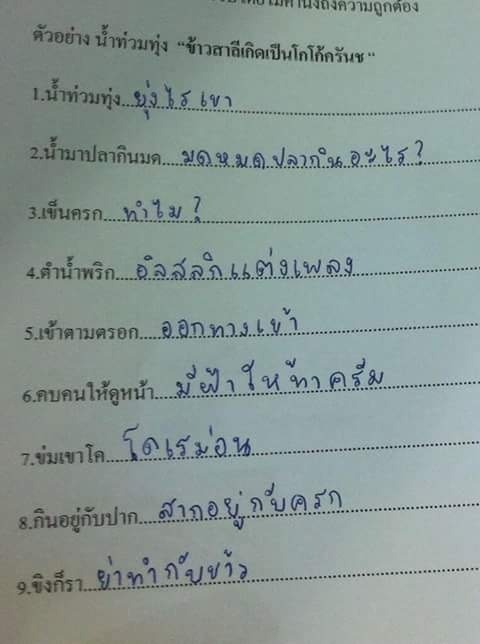 โดยไม่คำนึงถึงความถูกต้อง
ตัวอย่าง น้ำท่วมทุ่ง "ข้าวสาลีเกิดเป็นโกโก้ครันช"
1.น้ำท่วมทุ่ง...ยุ่งไรเขา
2.น้ำมาปลากินมด...มดหมดปลากินอะไร?
3.เข็นครก...ทำไม?
4.ตำน้ำพริก...อิลสลิกแต่งเพลง
5.เข้าตามตรอก...ออกทางเข้า
6.คบคนให้ดูหน้า...มีฝ้าให้ทาครีม
7.ข่มเขาโค...โดเรม่อน
8.กินอยู่กับปาก...สากอยู่กับครก
9.ขิงก็รา...ย่าทำกับข้าว